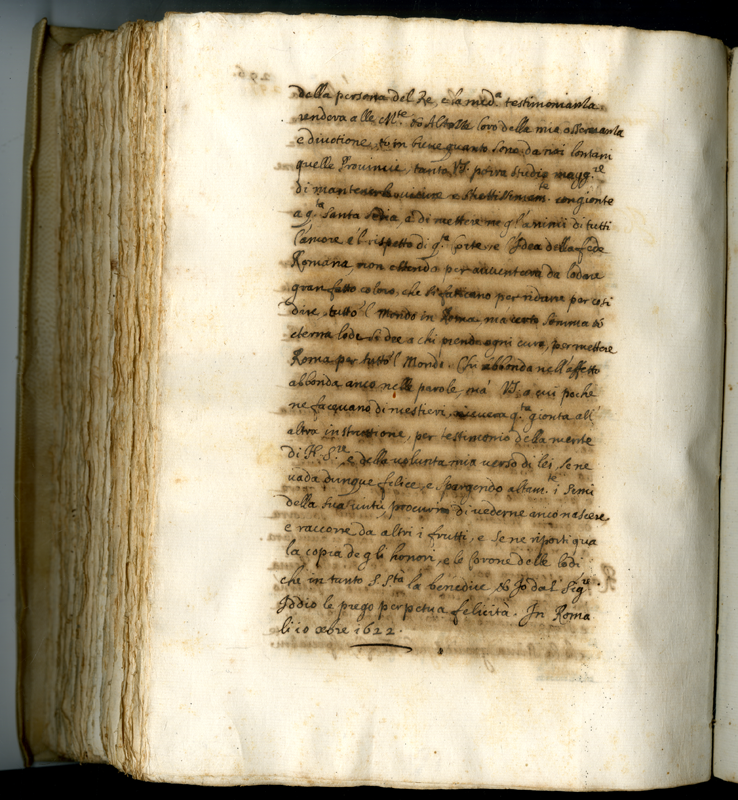 della persona del Re, e la med.a testimonianza
renderà alle M.te et Altezze loro della mia osservanza
e divotione, et in tene quanto sono da noi lontani
quelle Provincie, tanto V.S. porrà studio magg.re
di mantenerle unite e strettissimam.te congionte
a q.ta Santa Sedia, e di mettere ne gl'animi di tutti
l'amore e'l rispetto di q.ta Corte, e l'Idea della fede
Romana, non essendo per avventura da lodare
gran fatto coloro, che si faticano per ridurre per così
dire, tutto'l Mondo in Roma, ma certo somma et
eterna lode si dee a chi prenda ogni cura, per mettere
Roma per tutto'l Mondo. Chi abbonda nell'affetto
abbonda anco nelle parole, ma V.S. a cui poche
ne facevano di mestieri, riceverà q.ta gionta all'
altra instruttione, per testimonio della mente
di N. S.re e della volunta mia verso di lei, se ne
vada dunque felice, e spargendo altam.te i semi
della sua virtù, procurin di vederne anco nascere
e raccorre da altri i frutti, e se ne riporti qua
la copia de gli honori, e le corone delle lodi
che in tanto S. S.tà la benedice et Io dal Sig.re
Iddio le prego perpetua felicità. In Roma
li 10 xbre 1622.